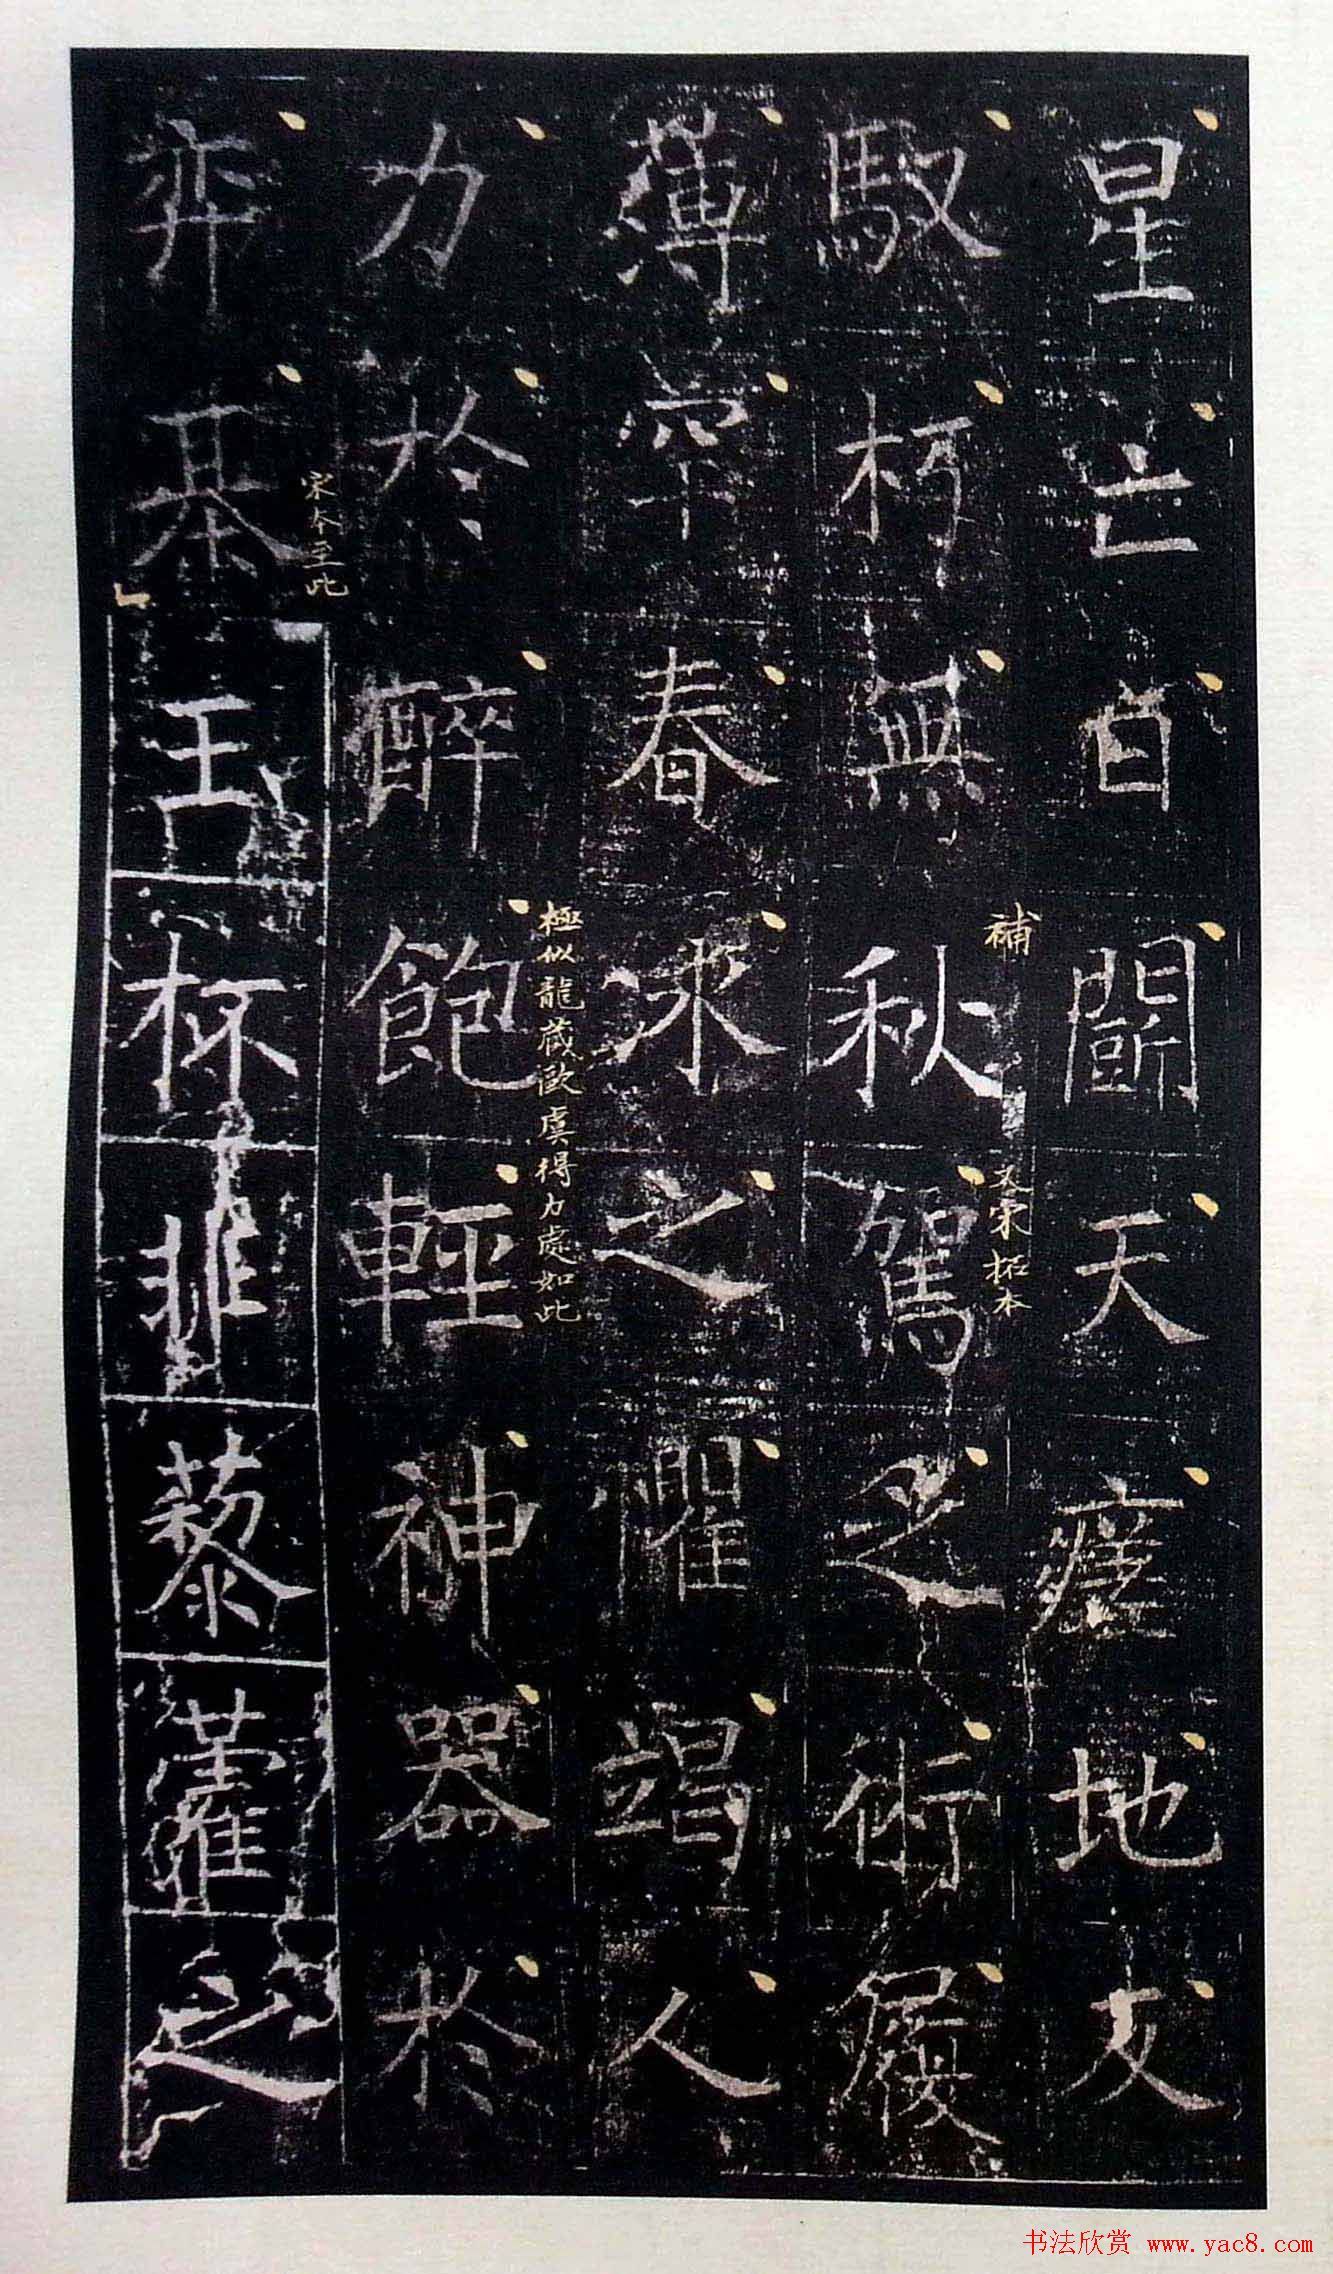 星亡自鬬天瘥地文
補
又宋拓本
馭朽無秋駕之術履
薄罕春冰之懼竭人
極似龍藏歐虞得力處如此
力於醉飽輕神器於
宋本至此
弈棊玉杯非藜藿之
书法欣赏 www.yac8.com